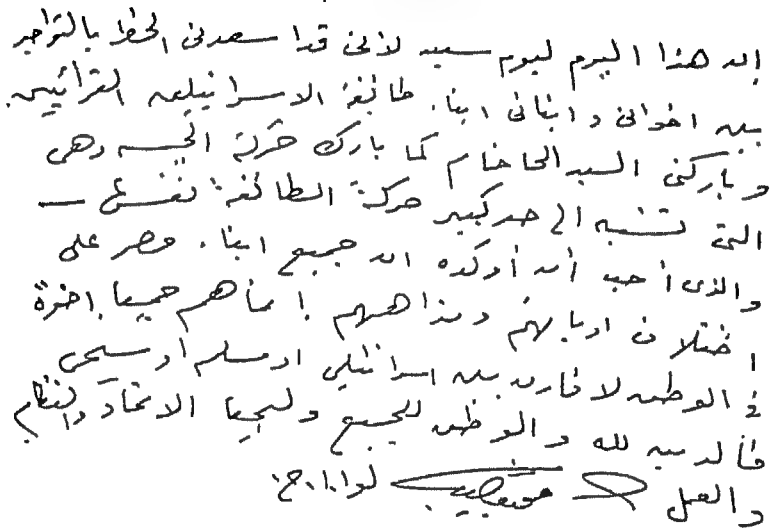 ان هذا اليوم ليوم سعيد لأنى قد اسعدنى الحظ بالتواجد
بين اخوانى وابنائى ابناء طائفة الاسرائيليين القرائيين
وباركنى السيد الحاخام كما بارك حركة الجيش وهى
التى تشبه الى حد كبير حركة الطائفة
والذى أحب أن أؤكده ان جميع ابناء مصر على
اختلاف اديانهم ومذاهبهم انما هم جميعا إخوة
فى الوطن لا فارق بين اسرائيلى او مسلم او مسيحى
فالدين لله والوطن للجميع وليحيا الاتحاد والنظام
والعمل محمد نجيب لواء ا. ح.